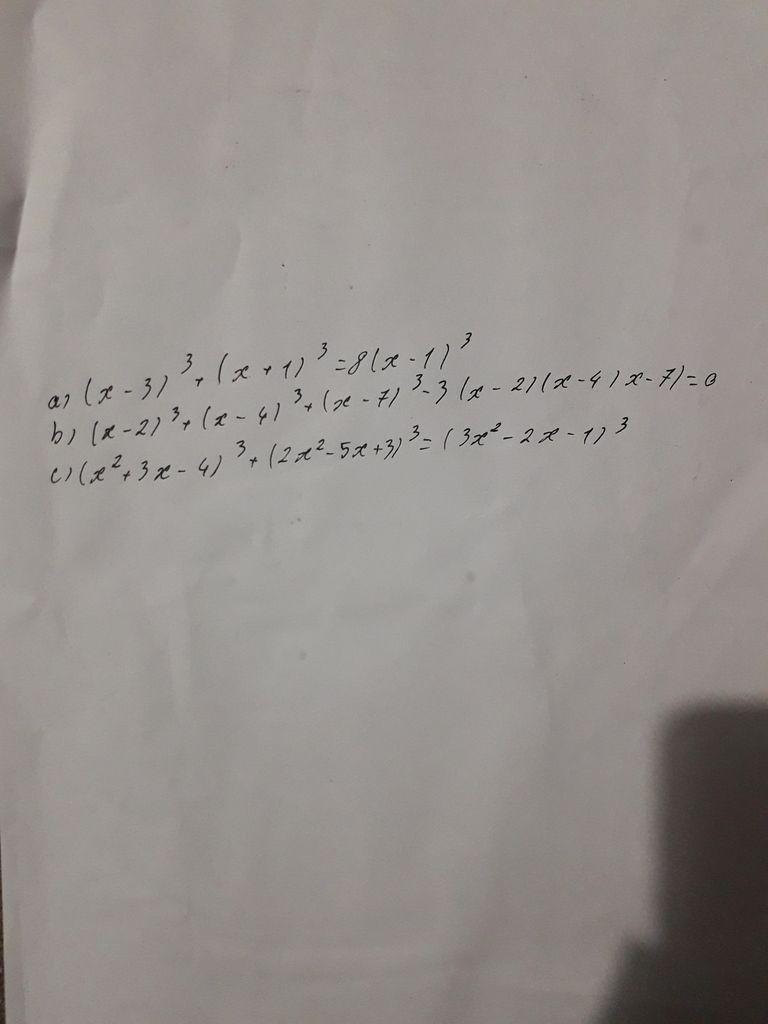 a) (x - 3)³ + (x + 1)³ = 8(x - 1)³
b) (x - 2)³ + (x - 4)³ + (x - 7)³ - 3 (x - 2) (x - 4) x - 7) = 0
c) (x² + 3x - 4)³ + (2x² - 5x + 3)³ = (3x² - 2x - 1)³